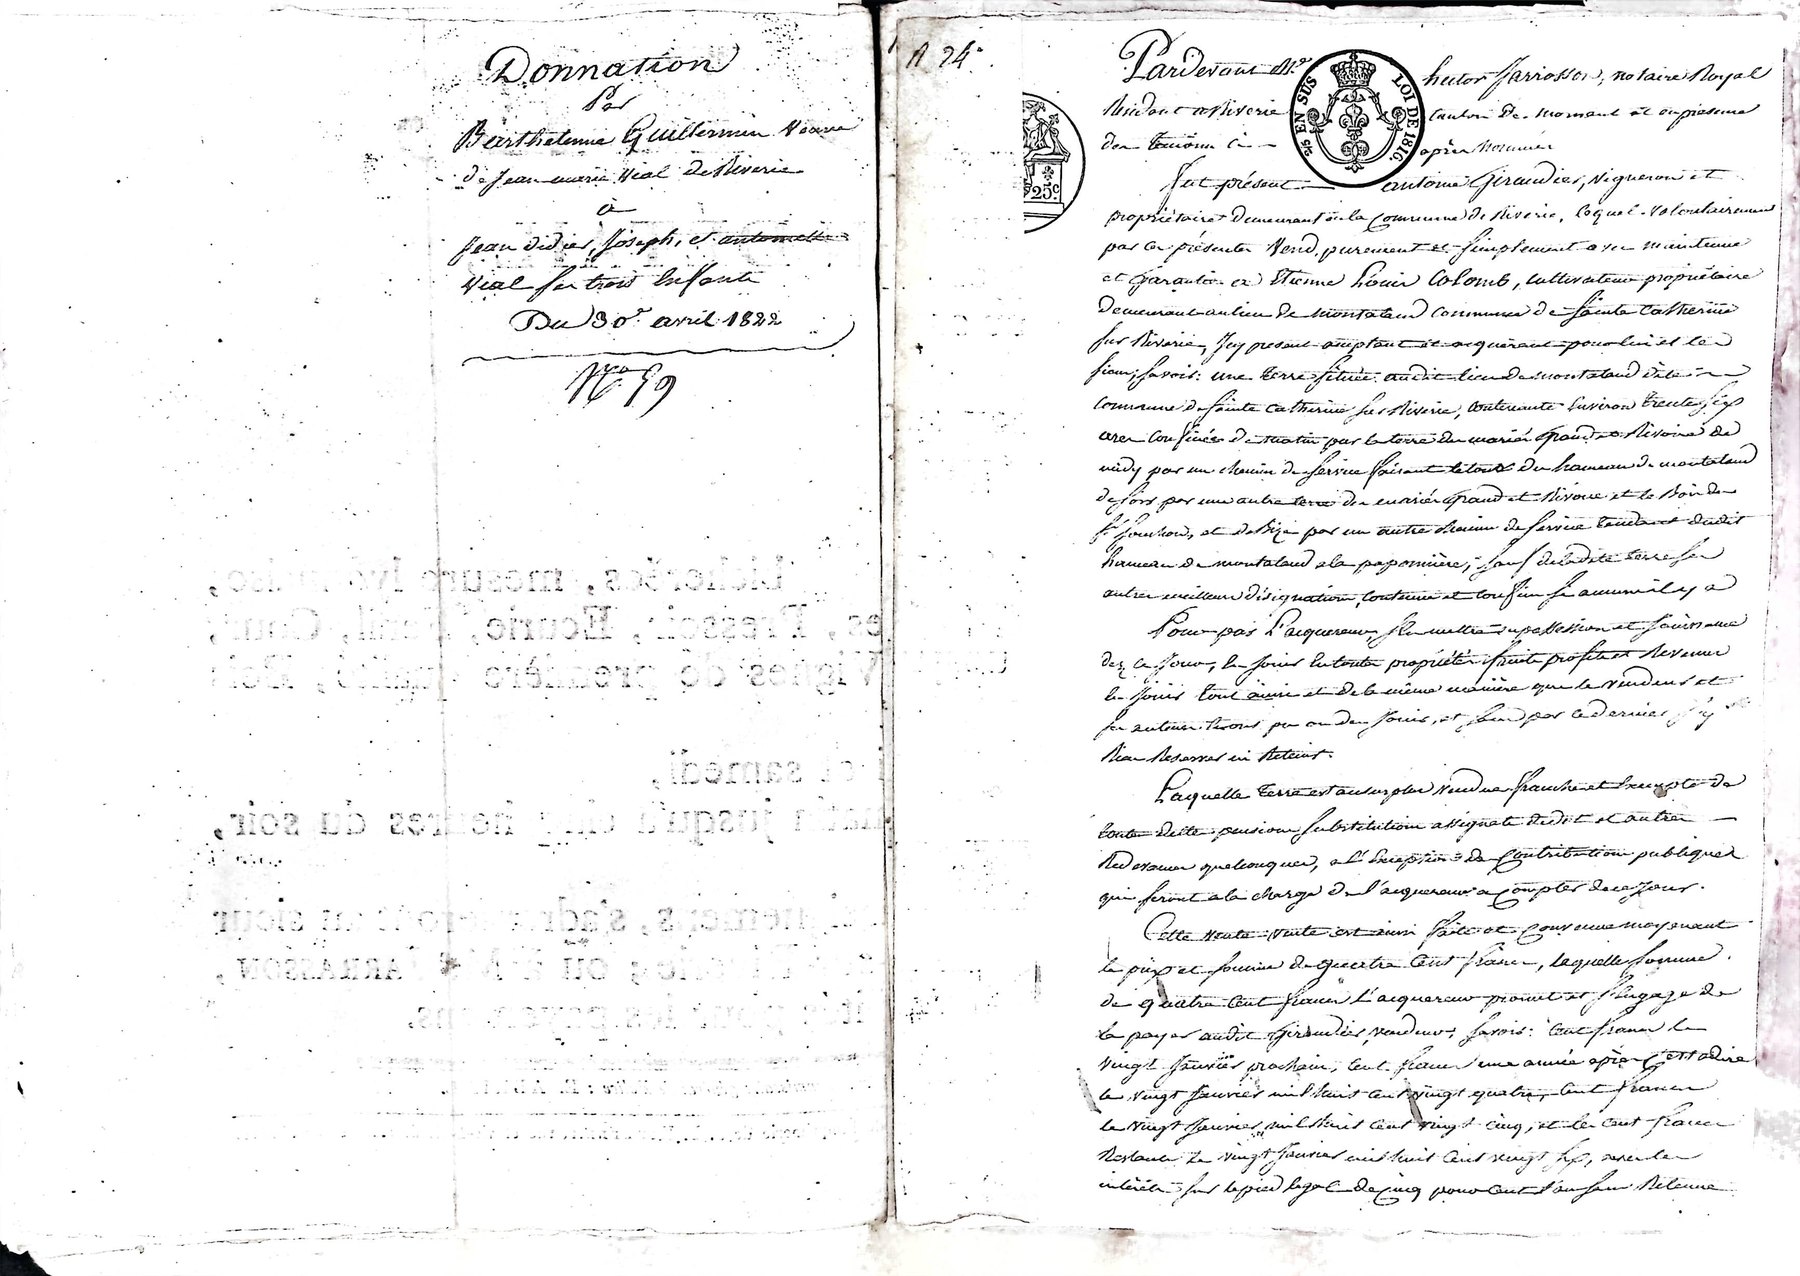 Donnation
Par
Barthelemie Guillermin Veuve
de Jean marie Vial de Riverie
à
Jean didier, Joseph, et antoinette
Vial ses trois Enfants
Du 30e avril 1822
No 59
A 24e
Pardevant Me hector Jarrosson, notaire Royal
Résidant a Riverie canton de mornant et en présence
des témoins ci après nommés
5/10 EN SUS LOI DE 1816.
25c
fut présent antoine Giraudier, Vigneron et
propriétaire demeurant en la Commune de Riverie, lequel volontairement
par ces présentes Vend purement et simplement avec maintenue
et Garantie a Etienne Louis Colomb, cultivateur propriétaire
demeurant au lieu de montaland commune de Sainte Catherine
sur Riverie, Icy present acceptant et acquérant pour lui et les
siens; savoir: une terre située audit lieu de montaland dite
commune de Sainte Catherine sur Riverie, contenante Environ trente six
ares confinée de matin par la terre des mariés Grand et Rivoire de
midy par un chemin de service faisant le tour du hameau de montaland
de soir par une autre terre des mariés Grand et Rivoire et le Bois de
et de Bize par un autre chemin de service tendant dudit
hameau de montaland a la paponnière; sauf de ladite terre ses
autres meilleurs désignation, contenue et confins se aucuns il y a
Pour par L'acquereur, s'en mettre en possession et jouissance
dez ce Jour, en Jouir En toute propriété, fruits profits et Revenus
en Jouir tout ainsi et de la même manière que le Vendeur et
ses auteurs En ont pu ou du Jouir, et sans par ce dernier s'y
Rien Reserver ni Retenir.
Laquelle terre est au surplus vendue franche et Exempte de
toute dette pension substitution assignats dédit et autres
Redevances quelconques, a L'Exception des Contributions publiques
qui seront a la charge de l'acquereur a compter de ce Jour.
Cette vente vente est ainsi faite et Convenue moyenant
le prix et somme de Quatre Cent francs, laquelle somme
de quatre cent francs L'acquereur promet et s'Engage de
la payer audit Giraudier, vendeur, savoir: Cent francs le
vingt Janvier prochain, Cent francs une année après C'est adire
le vingt Janvier mil huit cent vingt quatre, Cent francs
le vingt Janvier mil huit cent vingt cinq, et les cent francs
Restants le vingt Janvier mil huit cent vingt six, avec les
intérêts sur le pied legal de Cinq pour Cent l'an sans Retenue